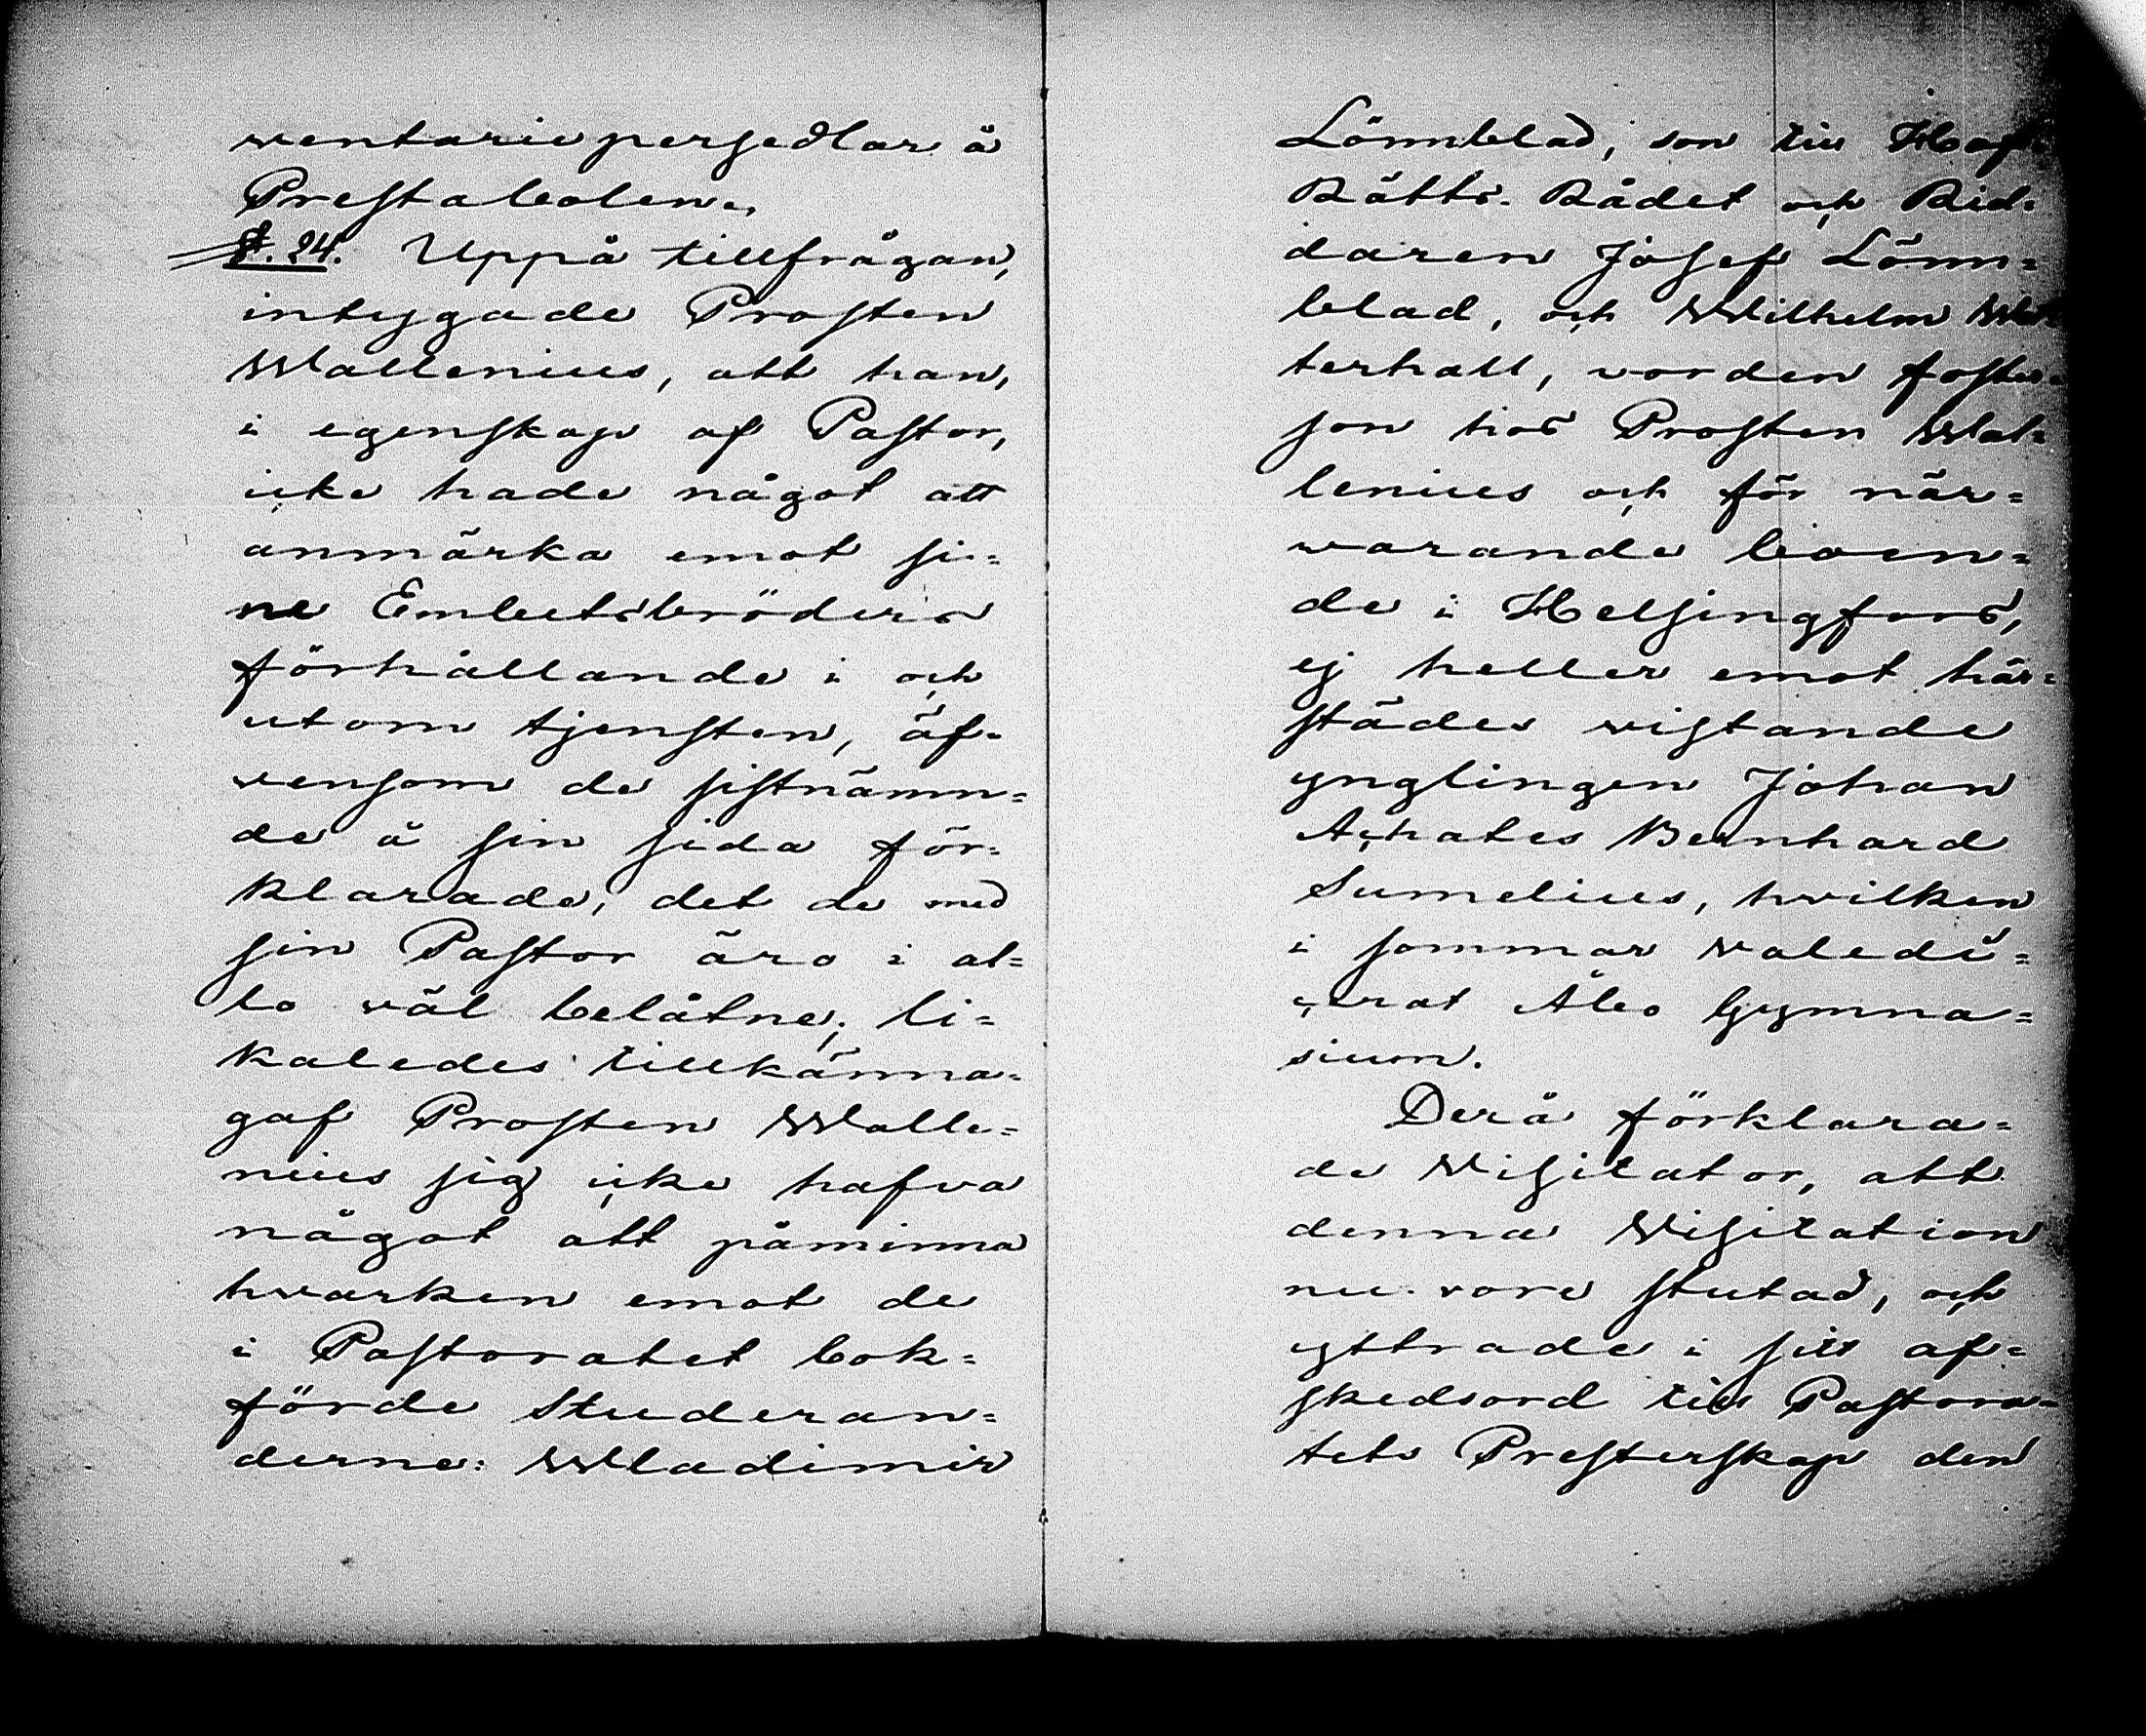 ventarie persedlar å
Prestabolen.
§. 24. Uppå tillfrågan,
intygade Prosten
Wallenius, att han,
i egenskap af Pastor,
icke hade något att
anmärka emot si=
ne Embetsbröders
förhållande i och
utom tjensten, äf=
vensom de sistnämn=
de å sin sida för=
klarade, det de med
sin Pastor äro i al=
lo väl belåtne; li=
kaledes tillkänna=
gaf Prosten Walle=
nius sig icke hafva
något att påminna
hvarken emot de
i Pastoratet bok=
förde Studeran=
derne: Wladimir
Lönnblad, son till Hof=
Rätts-Rådet och Rid=
daren Josef Lönn=
blad, och Wilhelm
terhall, vorden foster=
son hos Prosten Wal=
lenius och för när=
varande boen=
de i Helsingfors,
ej heller emot här=
städes vistande
ynglingen Johan
Achates Bernhard
Sumelius, hvilken
i sommar valedi=
cerat Åbo Gymna=
sium.
Derå förklara=
de Visitator, att
denna Visitation
nu vore slutad, och
yttrade i sitt af=
skedsord till Pastora=
tets Presterskap den